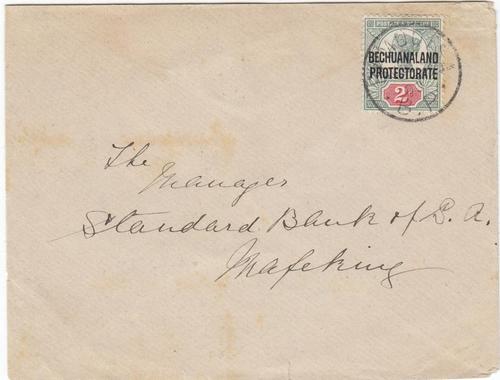 BECHUANALAND
PROTECTORATE
2d
The
Manager
Standard Bank of S. A.
Mafeking